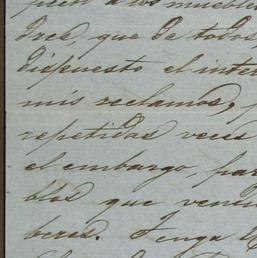 a los muebles
que de todos
dispuesto el inter
mis reclamos, y
repetidas veces
el embargo, par
blos que venu
beres. Tenga